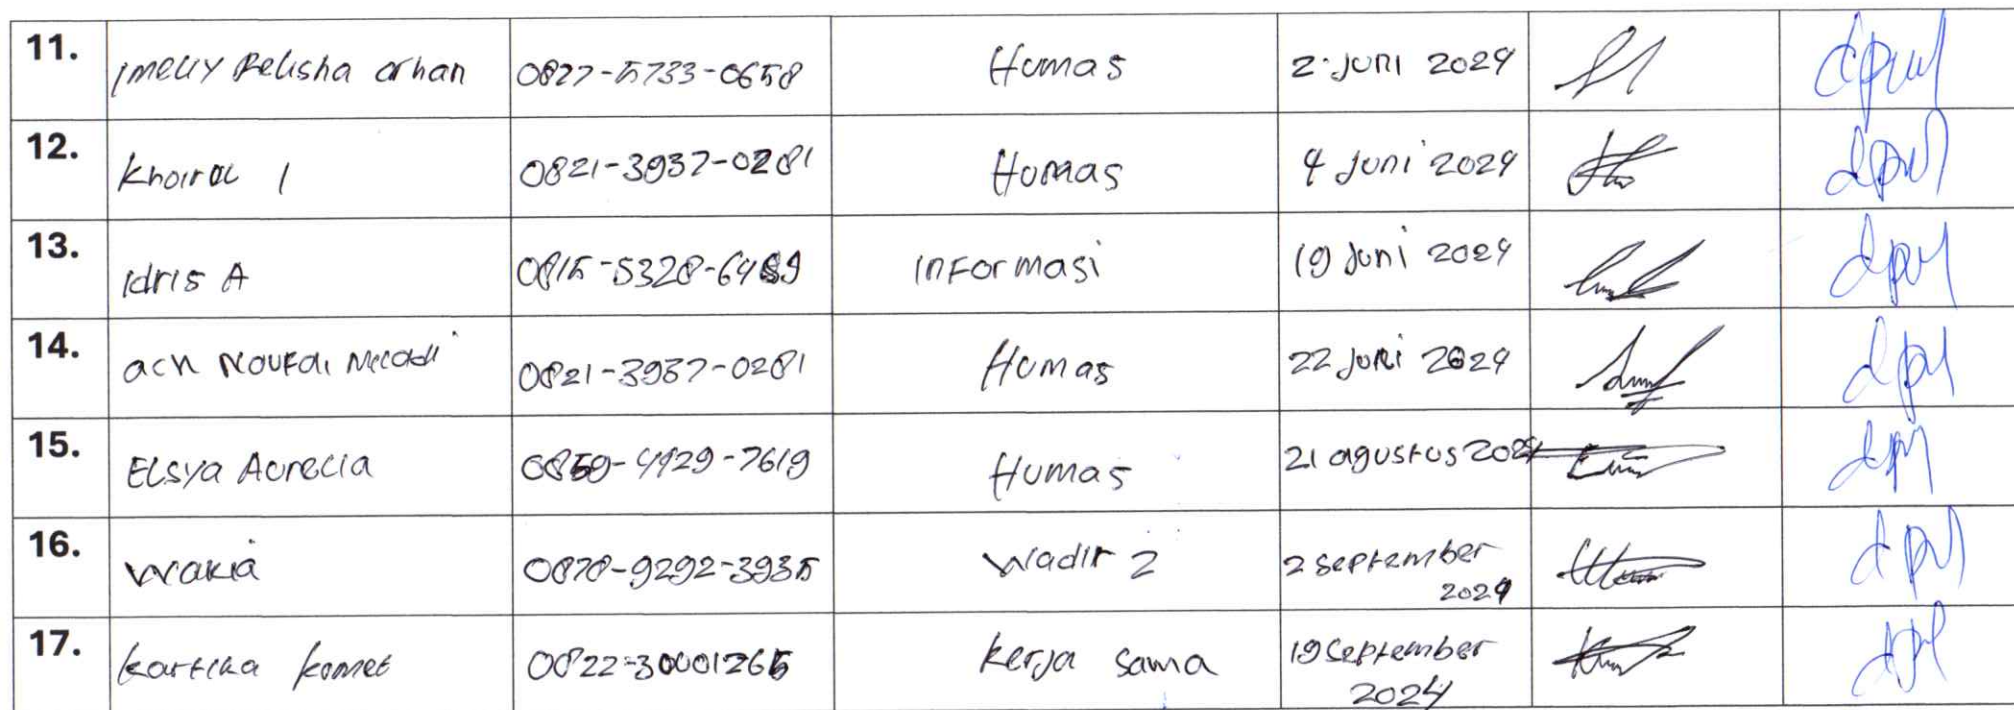 11. imelly Relisha arhan 0827-5733-0658 Humas 2 juni 2024
12. Khoirul I 0821-3937-0281 Humas 4 juni 2024
13. Idris A 0815-5328-6489 informasi 19 juni 2024
14. ach Noufal 0821-3937-0281 Humas 22 juni 2024
15. Elsya Aurelia 0859-4929-7619 Humas 21 agustus 2024
16. wakia 0878-9292-3935 Wadir 2 2 september
2024
17. kartika komet 0822-30001265 kerja sama 19 september
2024